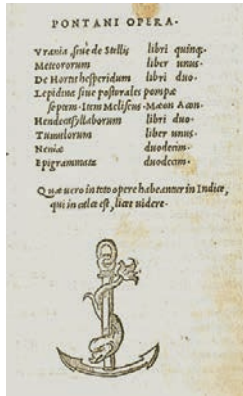 PONTANI OPERA.
Vrania, siue de Stellis libri quinq;
Meteororum liber unus.
De Hortis hesperidum libri duo.
Lepidina siue postorales pompæ
septem. Item Meliseus. Mæon Acon.
Hendecasyllaborum libri duo.
Tumulorum liber unus.
Neniæ duodecim.
Epigrammata duodecim.
Quæ uero in toto opere habeantur in Indice,
qui in calce est, licet uidere.